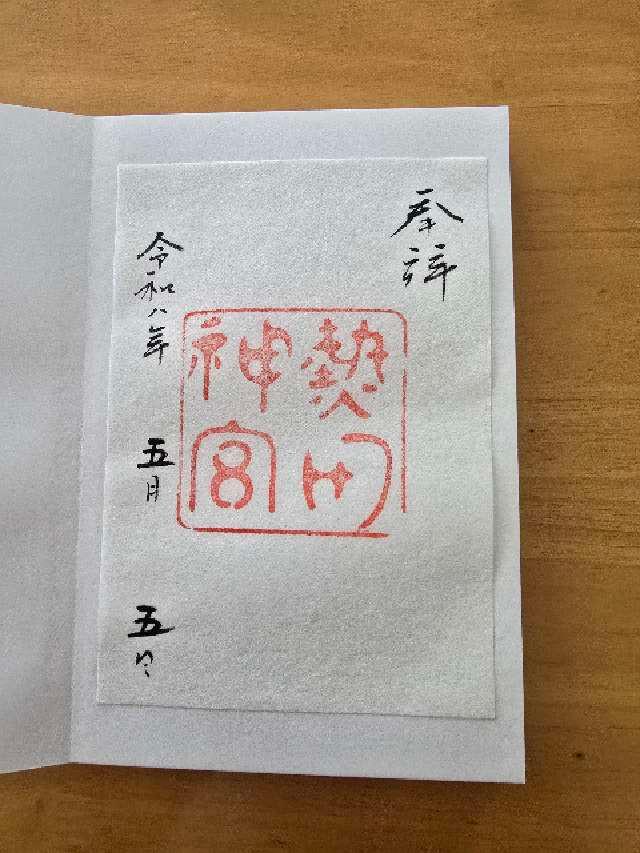 奉拝
熱田
神宮
令和八年 五月 五日